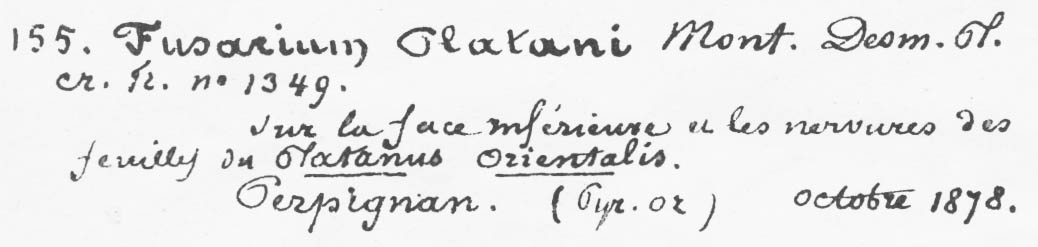 155. Fusarium Platani Mont. Desm. Pl.
cr. Fr. no 1349.
sur la face inférieure et les nervures des
feuilles du Platanus orientalis.
Perpignan. (Pyr. or) octobre 1878.